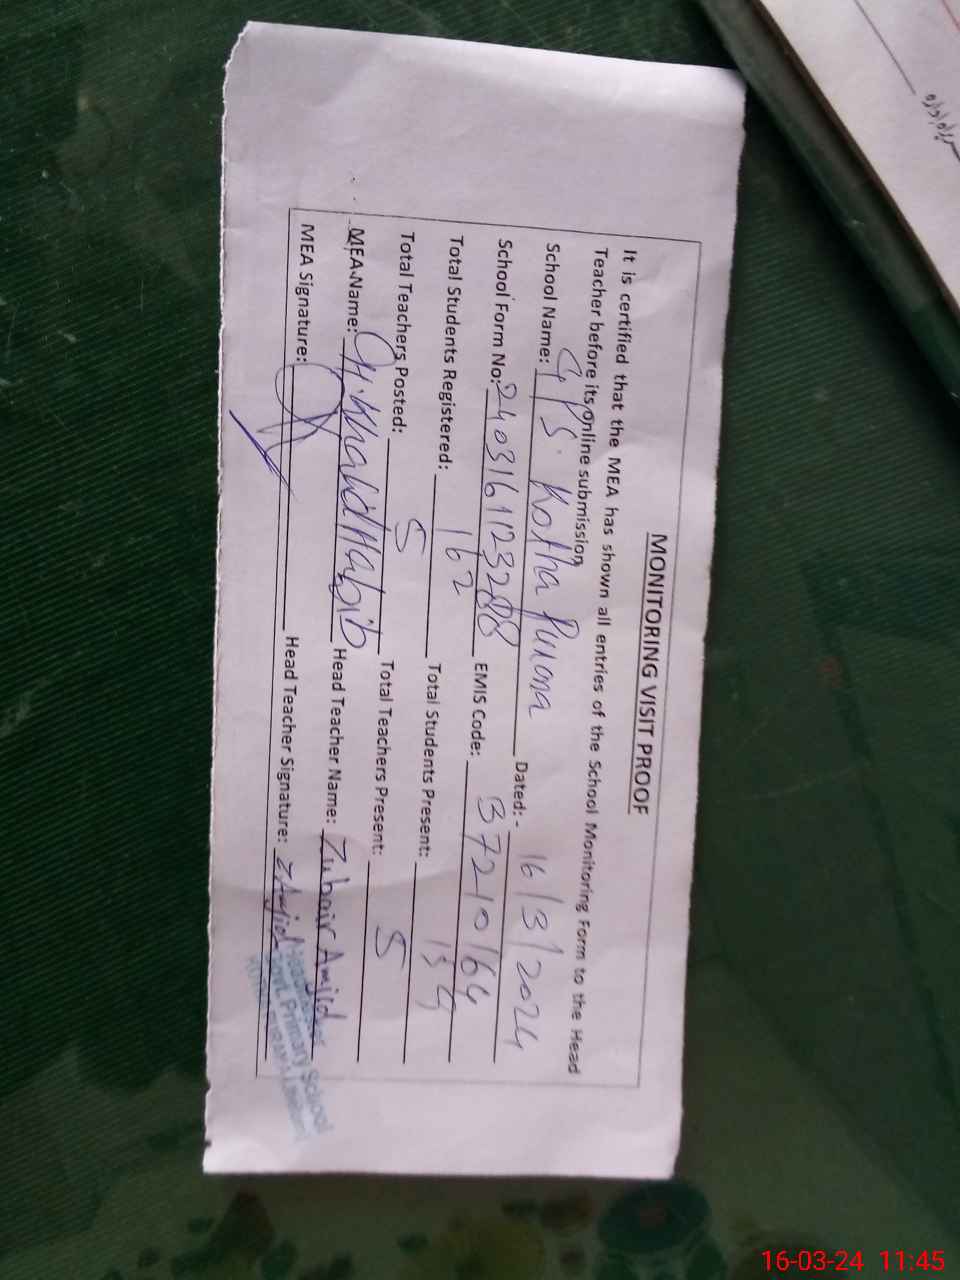 MONITORING VISIT PROOF
It is certified that the MEA has shown all entries of the School Monitoring Form to the Head
Teacher before its online submission
School Name: GPS. Kotha Purana Dated:- 16/3/2024
School Form No: 2403161123288 EMIS Code: 37210164
Total Students Registered: 162 Total Students Present:
Total Teachers Posted: 5 Total Teachers Present: 5
MEA Name: Khalid Habib Head Teacher Name: Zubair Amjid
MEA Signature: Head Teacher Signature: ZAmjid
Govt. Primary School
16-03-24 11:45